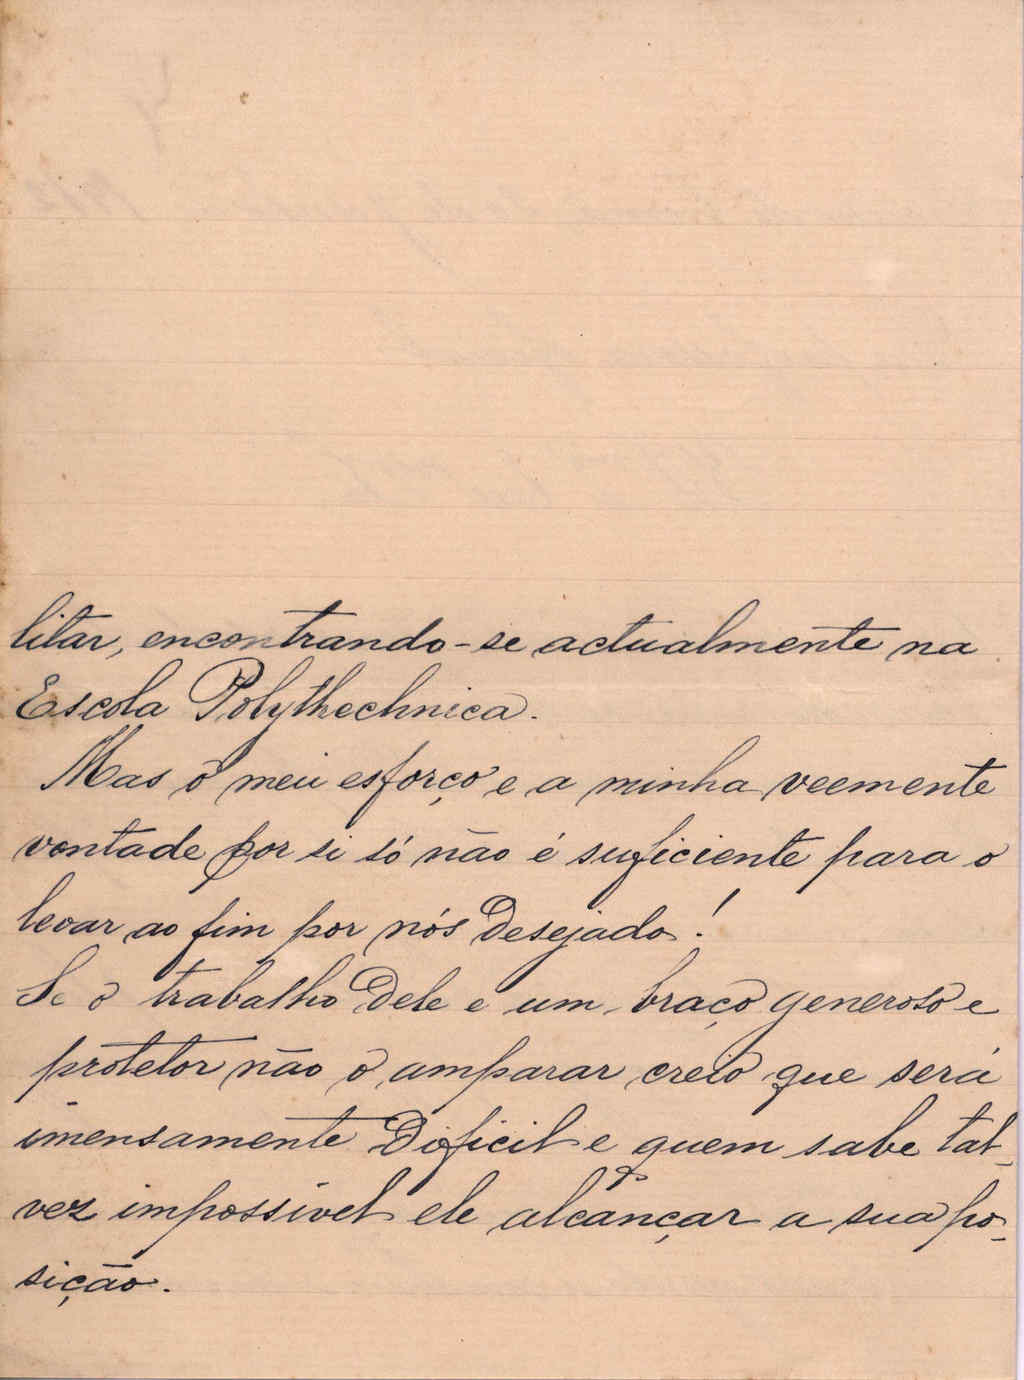 litar, encontrando-se actualmente na
Escola Polythechnica.
Mas o meu esforço e a minha veemente
vontade por si só não é suficiente para o
levar ao fim por nós desejado!
Se o trabalho dele e um braço generoso e
protetor não o amparar creio que será
imensamente dificil e quem sabe tal-
vez impossivel ele alcançar a sua po-
sição.